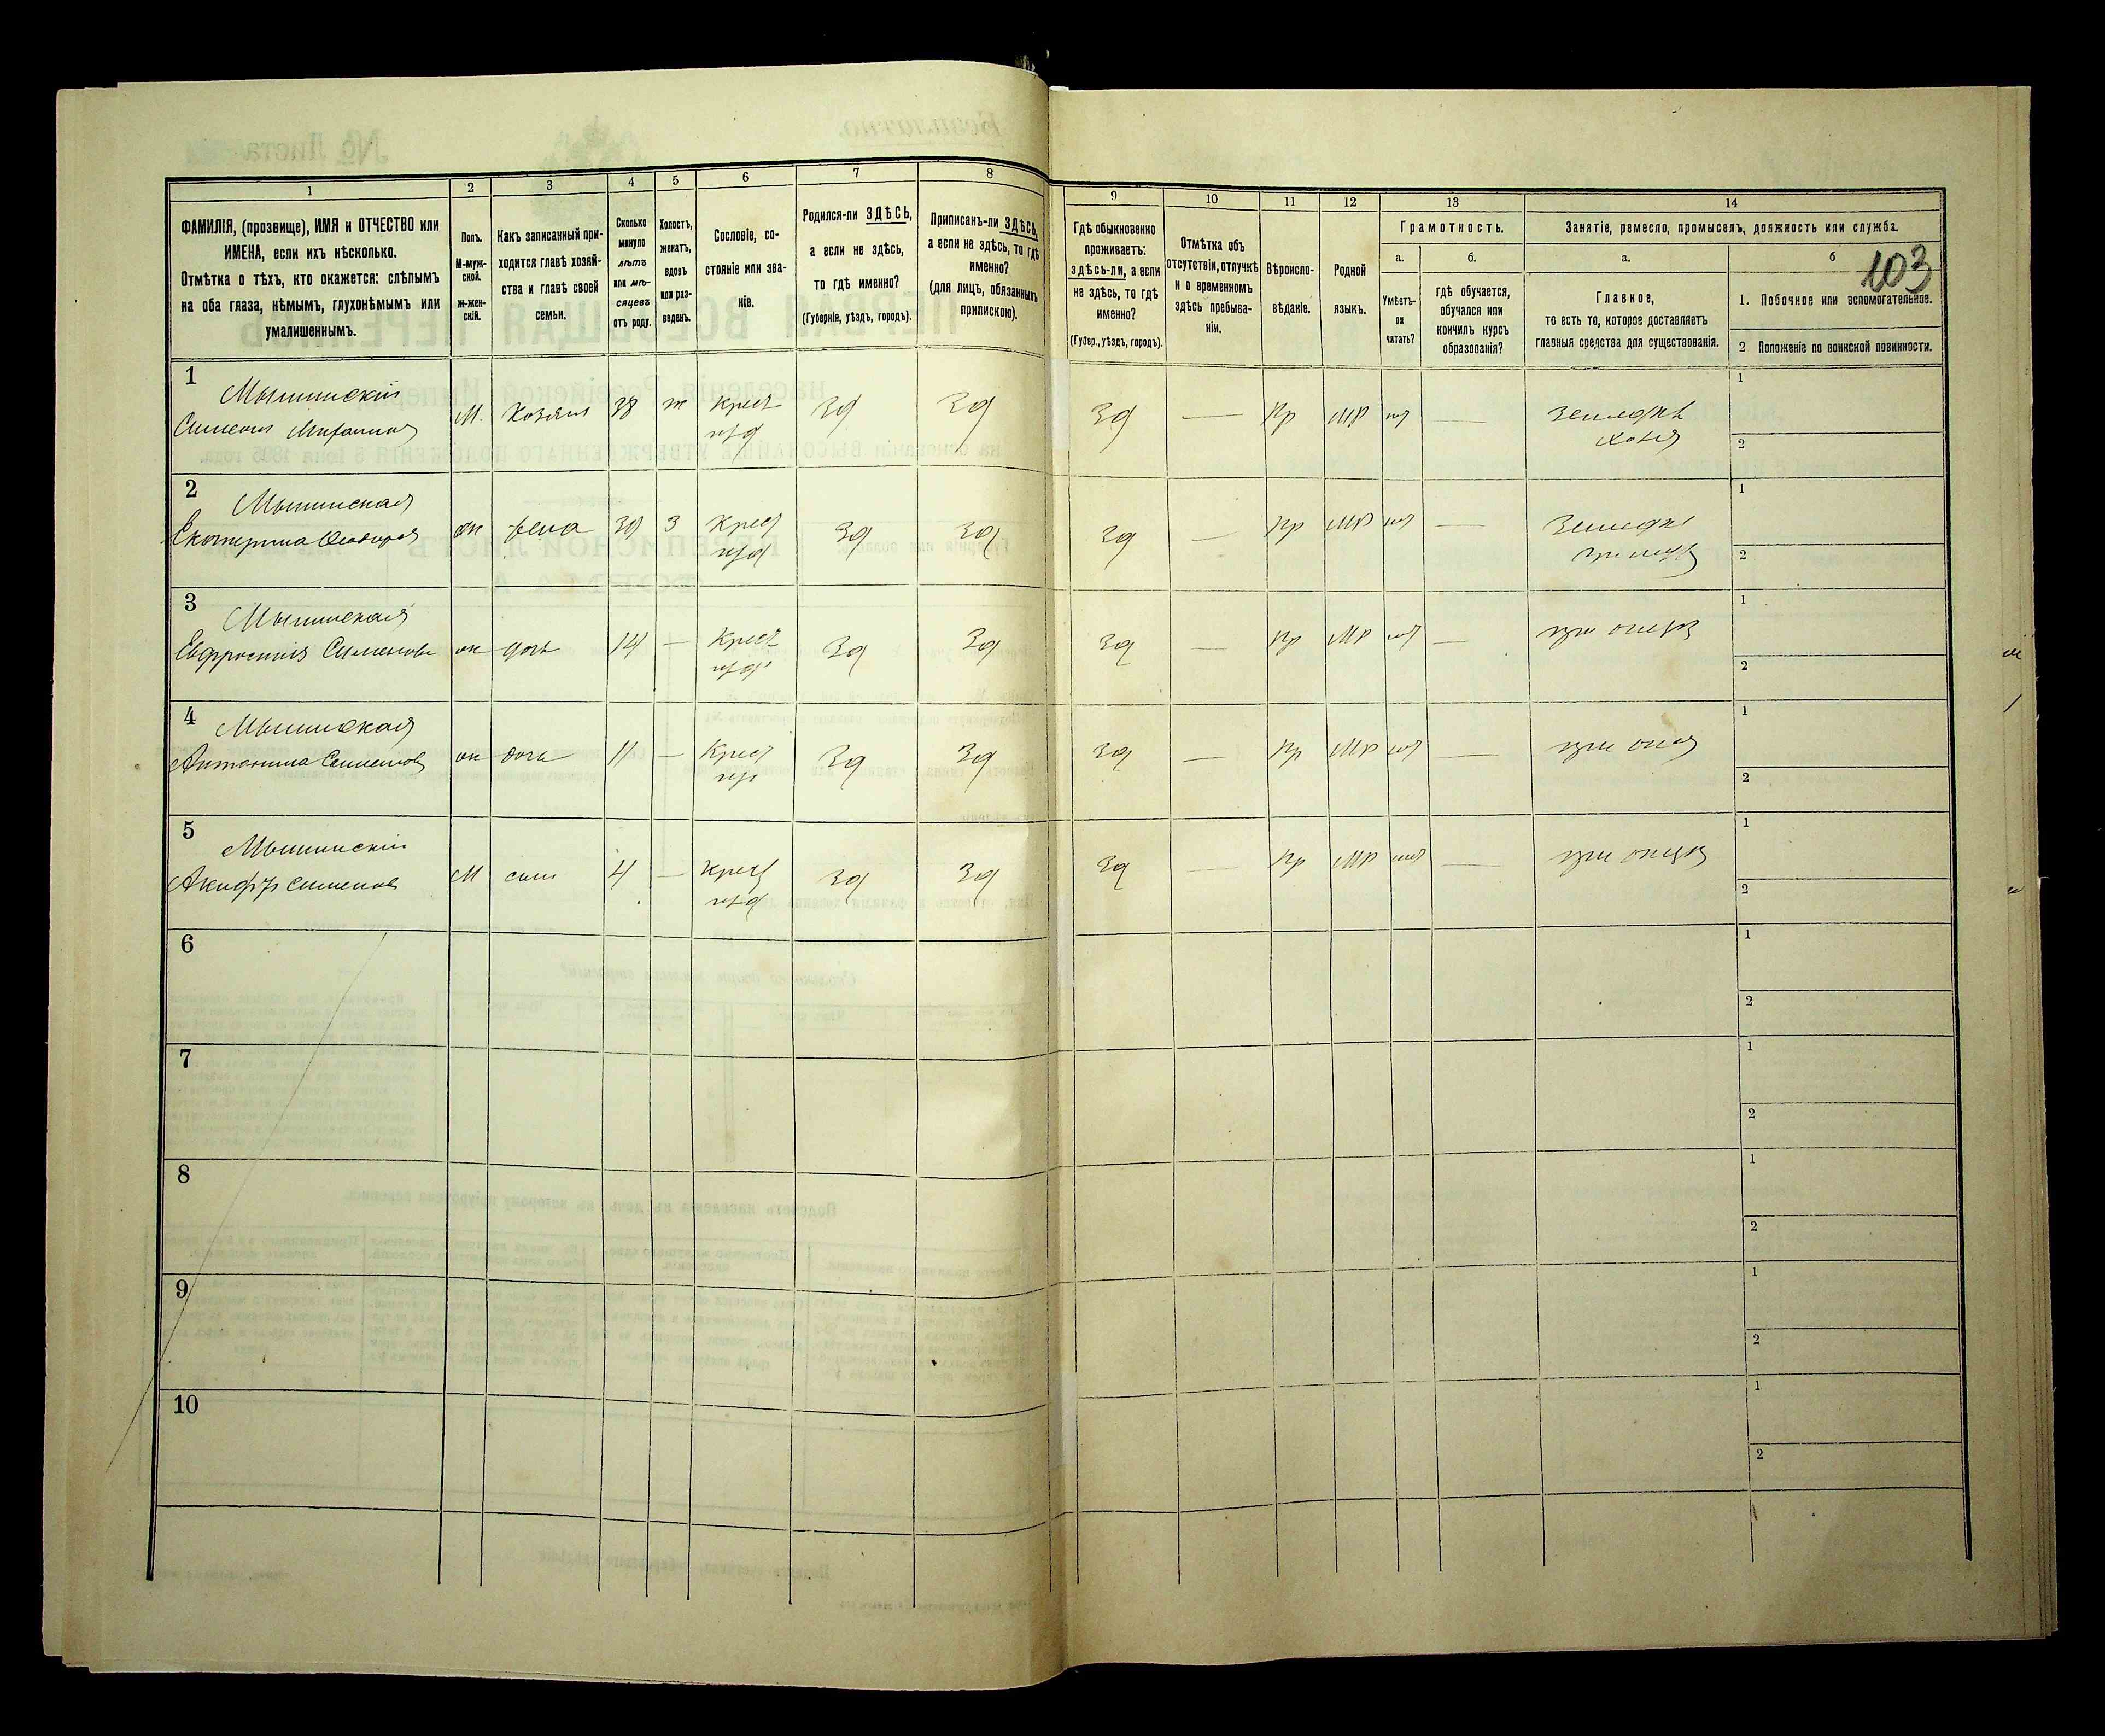 1
2
3
4
5
6
7
8
ФАМИЛІЯ, (прозвище), ИМЯ и ОТЧЕСТВО или
ИМЕНА, если ихъ нѣсколько.
Отмѣтка о тѣхъ, кто окажется: слѣпымъ
на оба глаза, нѣмымъ, глухонѣмымъ или
умалишеннымъ.
Полъ.
М-муж-
ской.
Ж-жен-
скій.
Какъ записанный при-
ходится главѣ хозяй-
ства и главѣ своей
семьи.
Сколько
минуло
лѣтъ
или мѣ-
сяцевъ
отъ роду.
Холостъ,
женатъ,
вдовъ
или раз-
веденъ.
Сословіе, со-
стояніе или зва-
ніе.
Родился-ли ЗДѢСЬ,
а если не здѣсь,
то гдѣ именно?
(Губернія, уѣздъ, городъ).
Приписанъ-ли ЗДѢСЬ,
а если не здѣсь, то гдѣ
именно?
(для лицъ, обязанныхъ
припискою).
9
10
11
12
13
14
Гдѣ обыкновенно
проживаетъ:
здѣсь-ли, а если
не здѣсь, то гдѣ
именно?
(Губер., уѣздъ, городъ).
Отмѣтка объ
отсутствіи, отлучкѣ
и о временномъ
здѣсь пребыва-
ніи.
Вѣроиспо-
вѣданіе.
Родной
языкъ.
Грамотность.
а.
Умѣетъ-
ли
читать?
б.
гдѣ обучается,
обучался или
кончилъ курсъ
образованія?
Занятіе, ремесло, промыселъ, должность или служба.
а.
Главное,
то есть то, которое доставляетъ
главныя средства для существованія.
б
103
1. Побочное или вспомогательное.
2 Положеніе по воинской повинности.
1
Мышинскій
Симеонъ
М.
Хозяин
38
ж
Крест
Зд
Зд
Зд
—
Пр
МР
нѣт
—
1
2
2
Мышинская
Екатерина
ж
жена
39
З
Крест
Зд
Зд
Зд
—
Пр
МР
нѣт
—
1
2
3
Мышинская
Евфросинія Симеонова
ж
дочь
14
—
Крест
Зд
Зд
Зд
—
Пр
МР
нѣт
—
при отцѣ
1
2
4
Мышинская
Антонина Симеонов
ж
дочь
11
—
Крест
Зд
Зд
Зд
—
Пр
МР
нѣт
—
1
2
5
Мышинскій
Симеонов
М
сын
4
—
Крест
Зд
Зд
Зд
—
Пр
МР
нѣт
—
при отцѣ
1
2
6
1
2
7
1
2
8
1
2
9
1
2
10
1
2